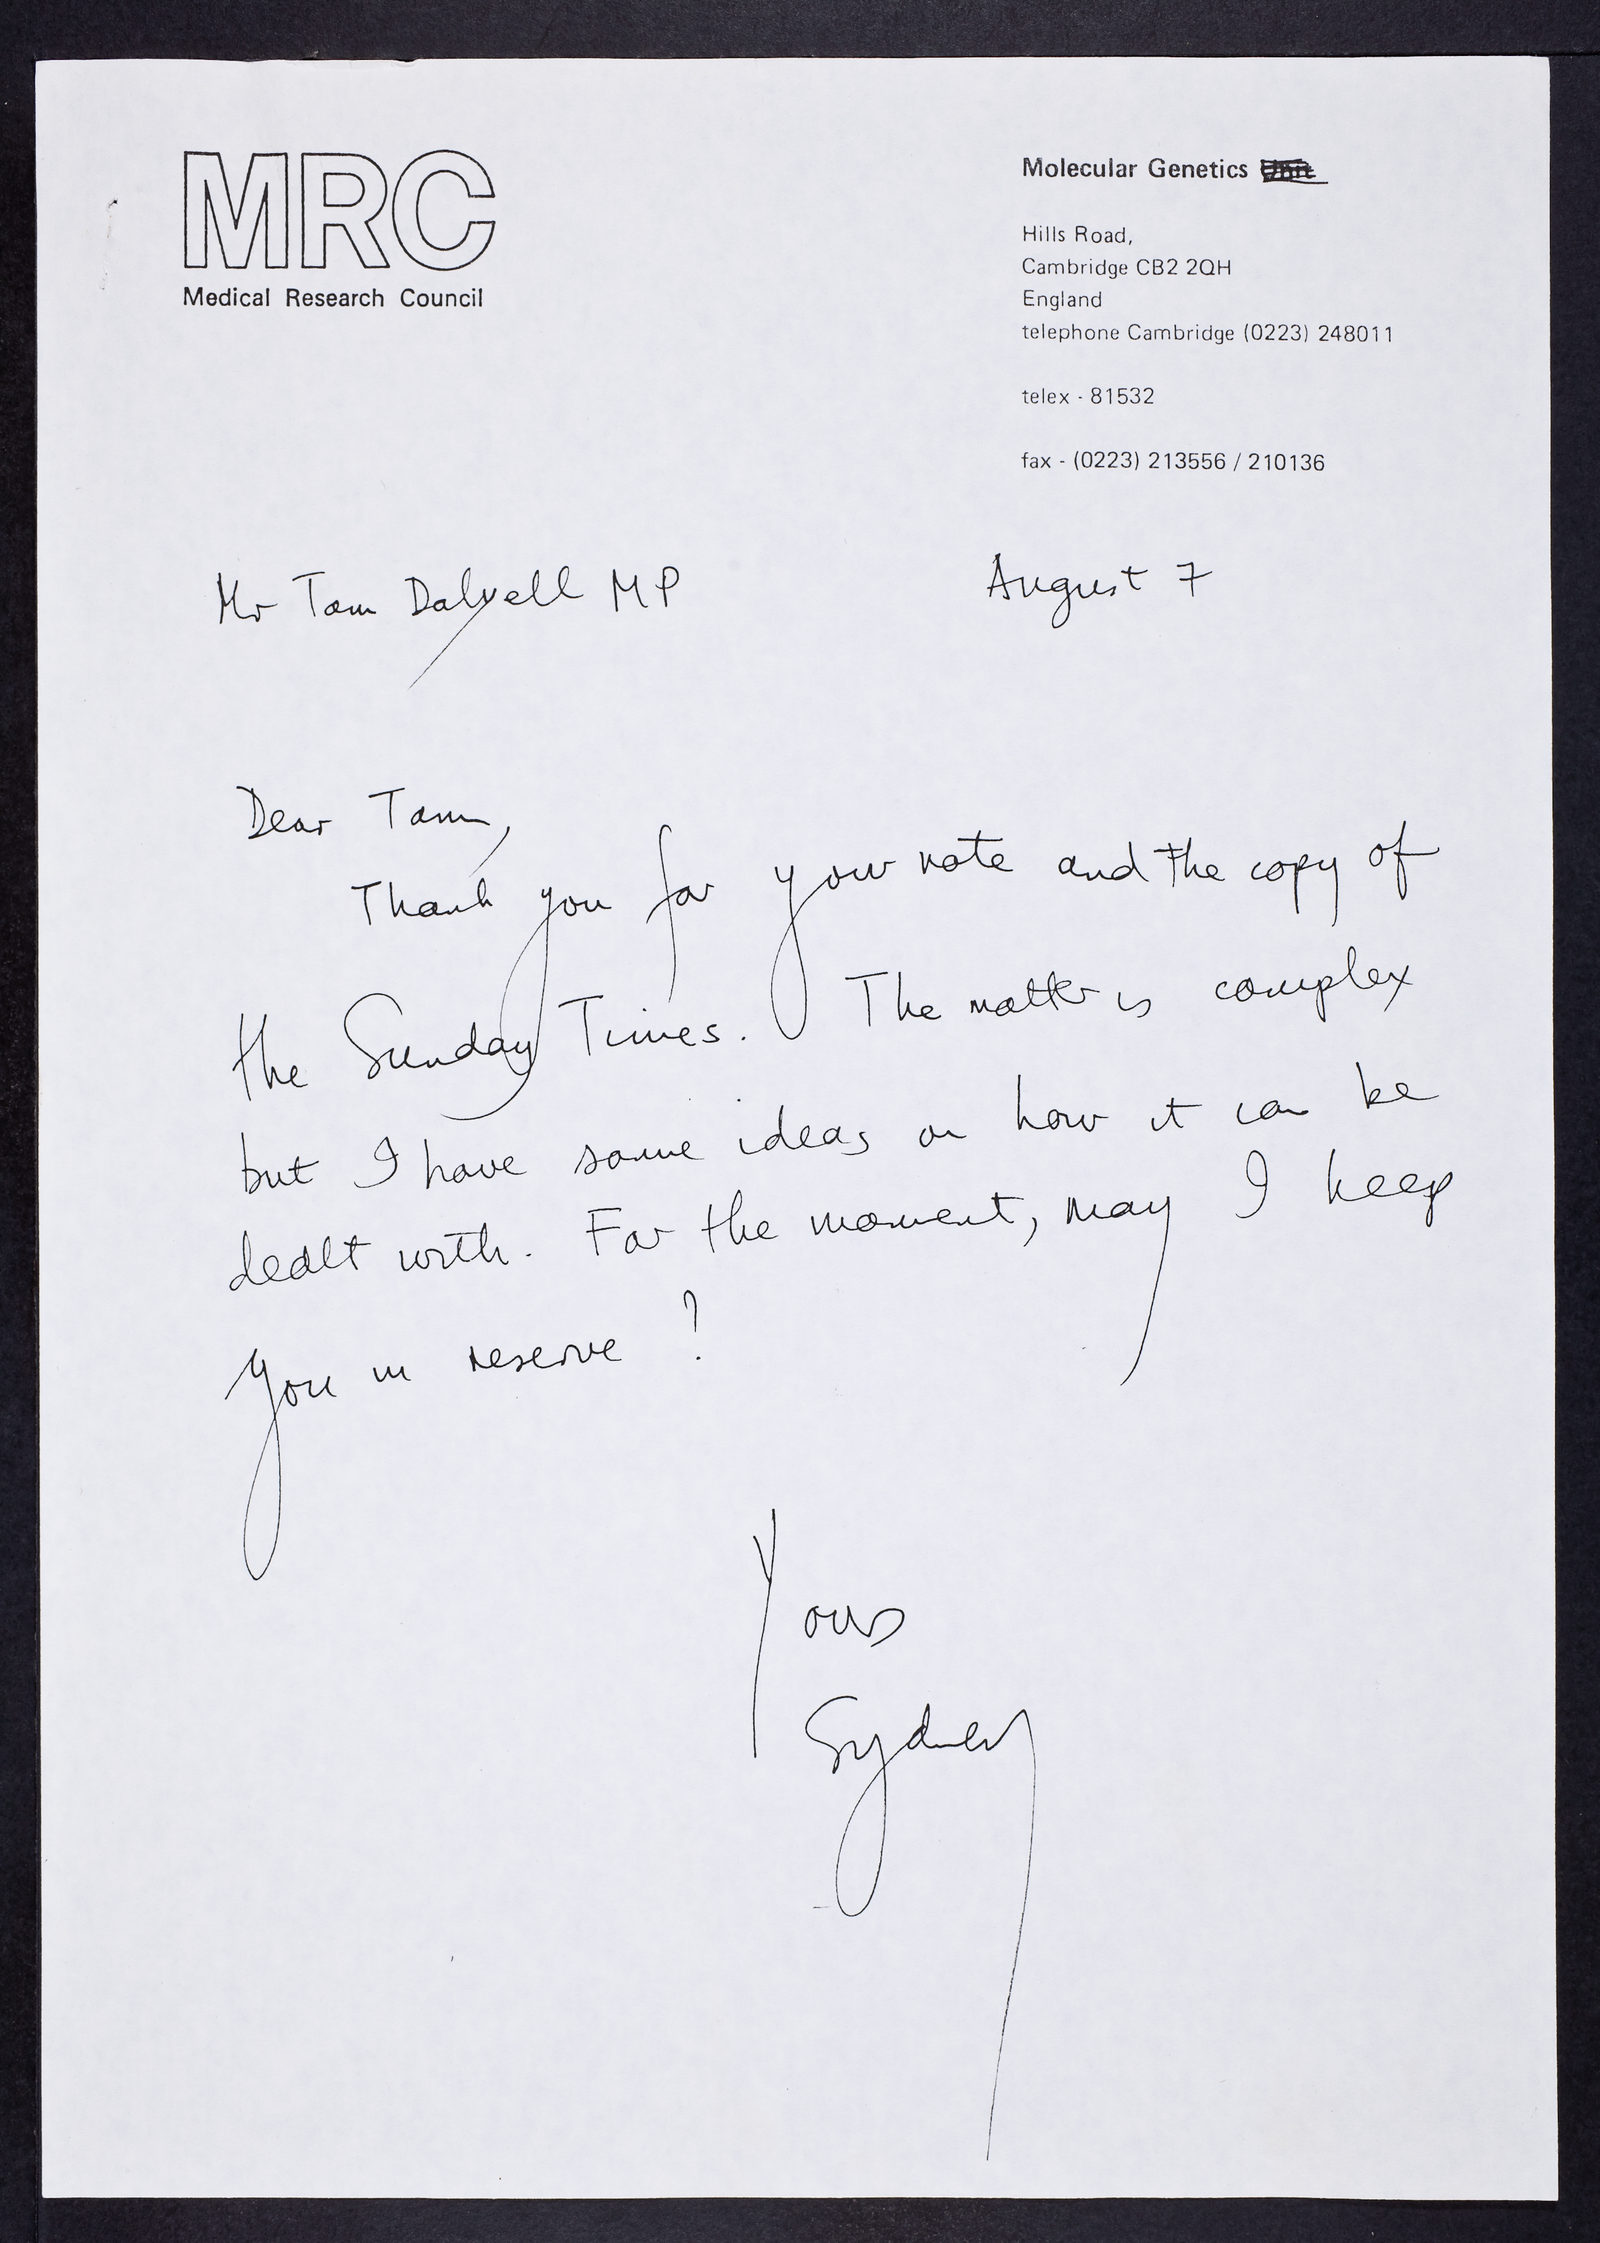 MRC
Medical Research Council
Molecular Genetics Unit
Hills Road,
Cambridge CB2 2QH
England
telephone Cambridge (0223) 248011
telex - 81532
fax - (0223) 213556 / 210136
Mr Tam Dalyell MP
August 7
Dear Tam,
Thank you for your note and the copy of
the Sunday Times. The matter is complex
but I have some ideas on how it can be
dealt with. For the moment, may I keep
you in reserve?
Yours
Sydney